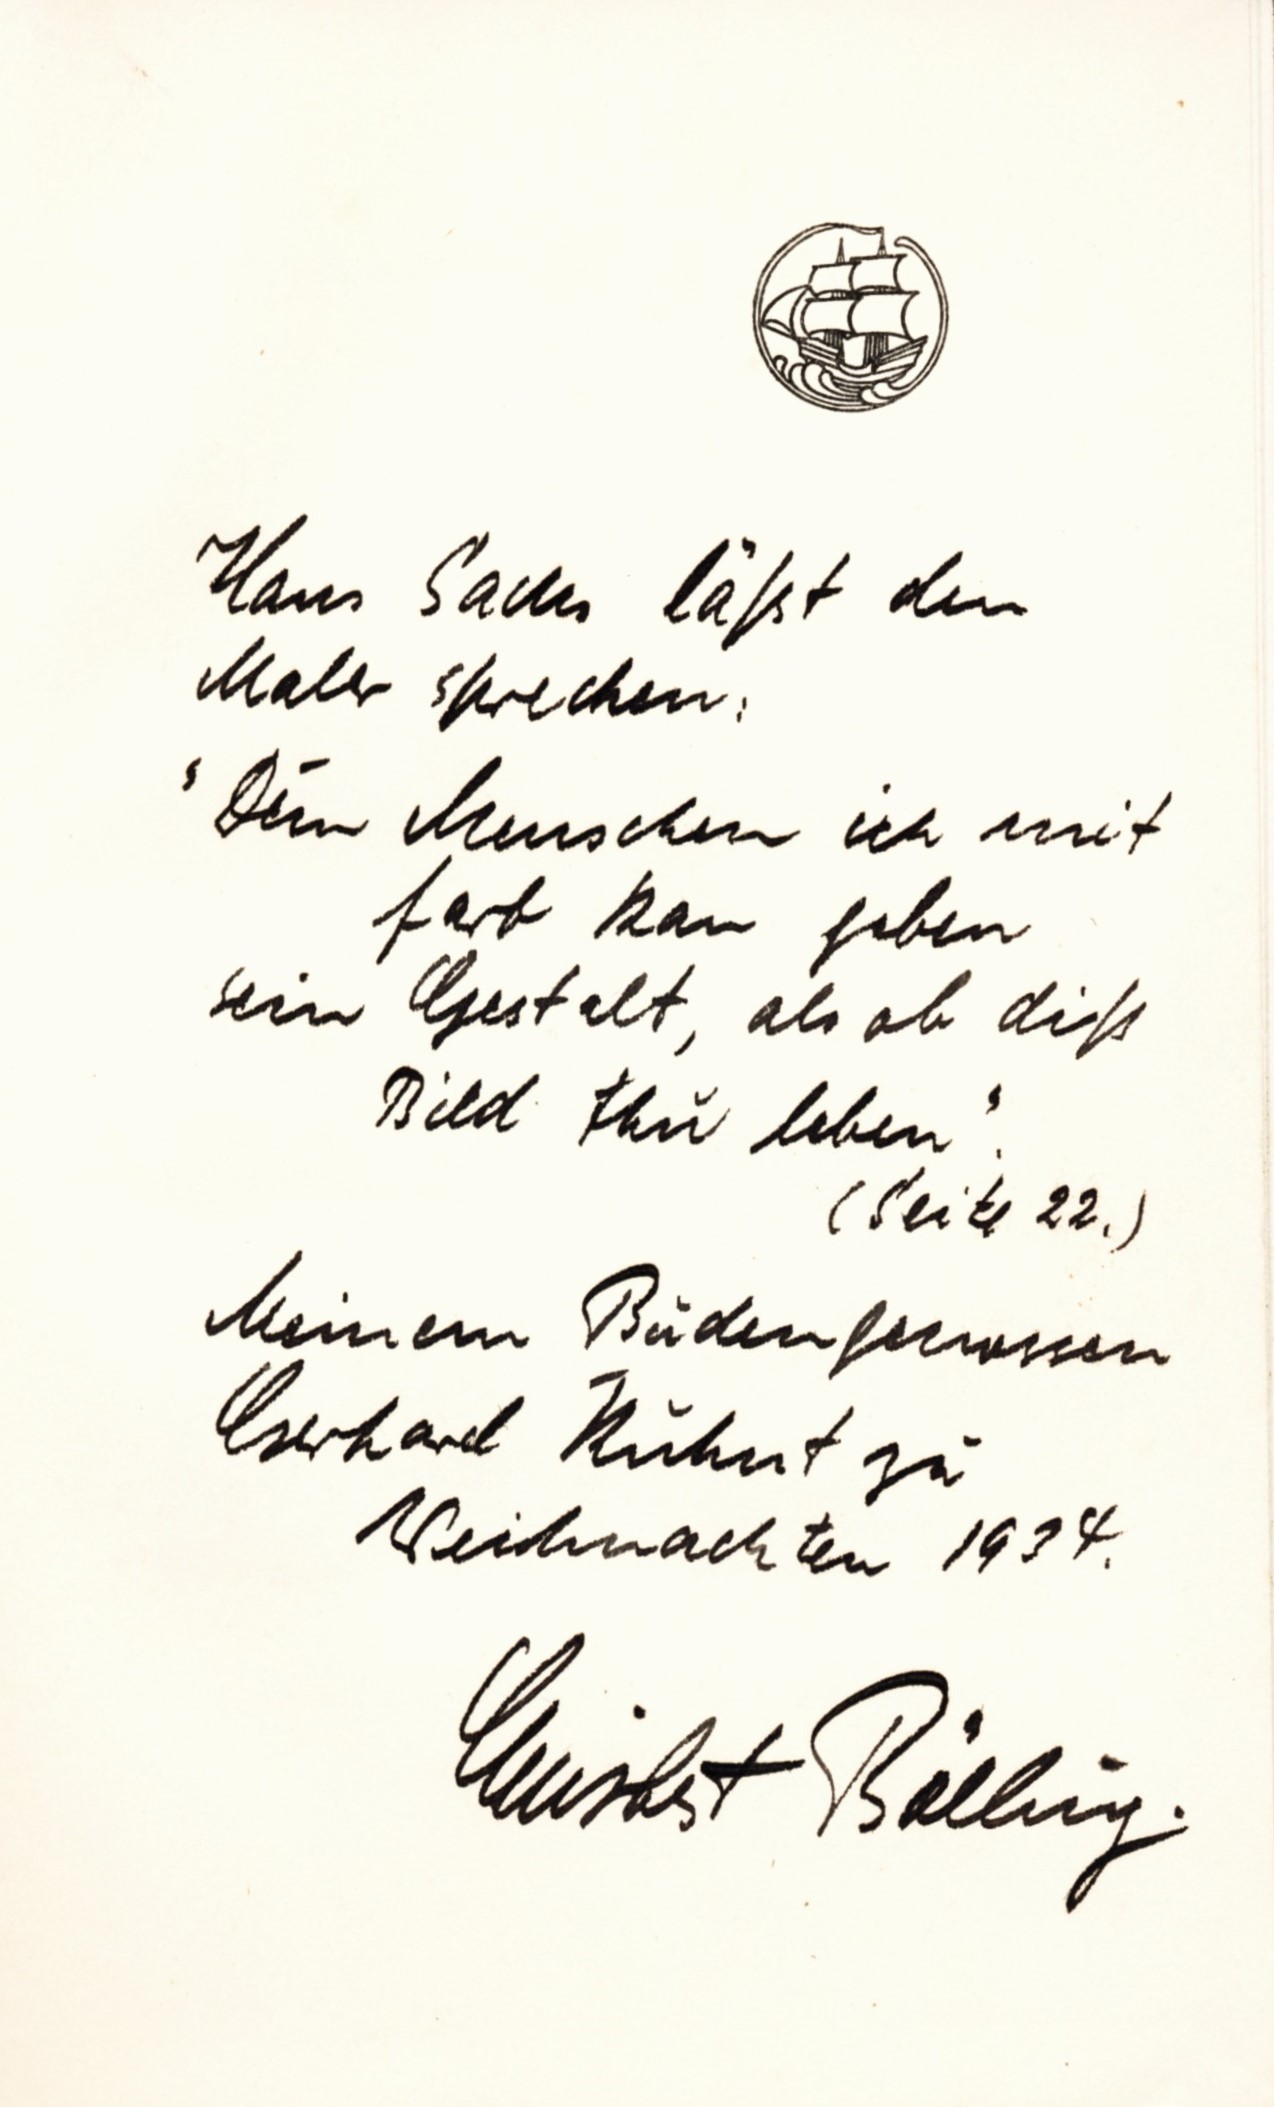 Hans Sachs läßt den
Maler sprechen:
"Dem Menschen ich mit
farb kan geben
sein Gestalt, als ob diß
Bild thu leben".
(Seite 22.)
Meinem Budengenossen
Gerhard Kuhnt zu
Weihnachten 1934.
Bölling.